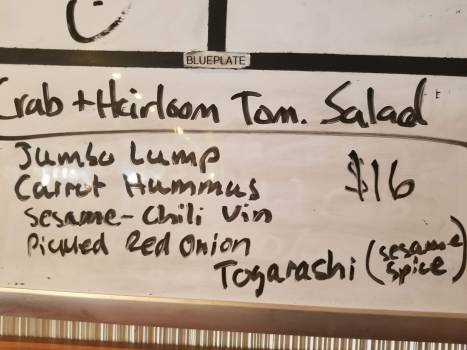 BLUEPLATE
Crab + Heirloom Tom. Salad
Jumbo Lump
Carrot Hummus $16
Sesame-Chili Vin
Pickled Red Onion
Togarashi (sesame spice)